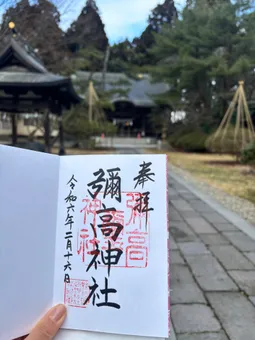 奉拝
彌高神社
令和六年二月十六日